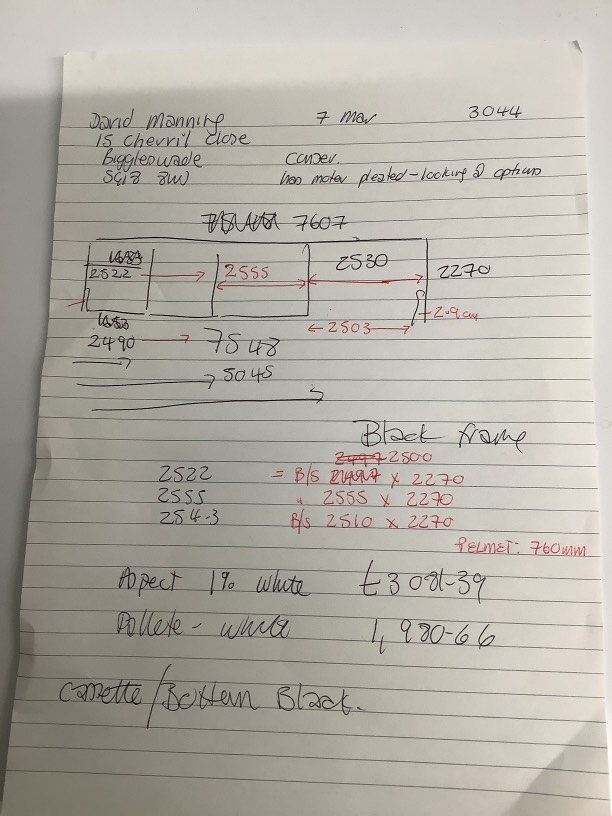 David Manning 7 Mar 3044
15 Chevril Close
Biggleswade
SG18 8W
has motor pleated - looking @ options
7607
2522 2555 2530 2270
2.9cm
2503
2490 7548
5045
Black frame
2500
2522 = B/S 2497 x 2270
2555 " 2555 x 2270
254-3 B/S 2510 x 2270
PELMET: 760mm
Aspect 1% white £3081-39
Pallete - white 1,980-66
Cassette/Bottom Black.